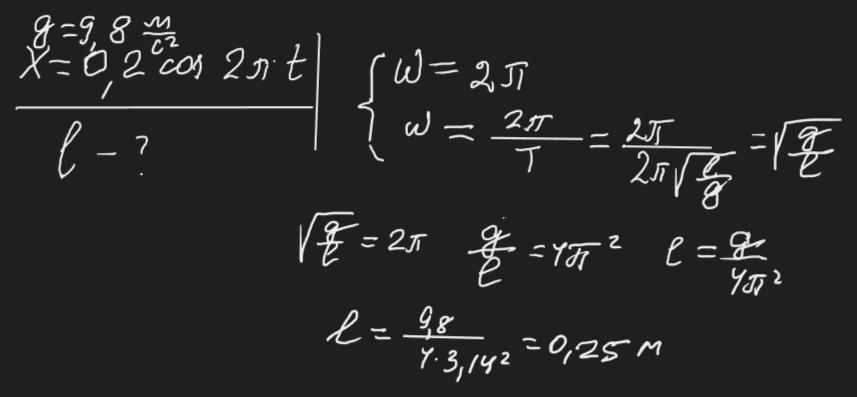 g = 9,8 м/с²
x = 0,2 cos 2π t
l - ?
ω = 2π
ω = 2π/T = 2π/(2π√(l/g)) = √(g/l)
√(g/l) = 2π g/l = 4π² l = g/4π²
l = 9,8/(4·3,14²) = 0,25 м